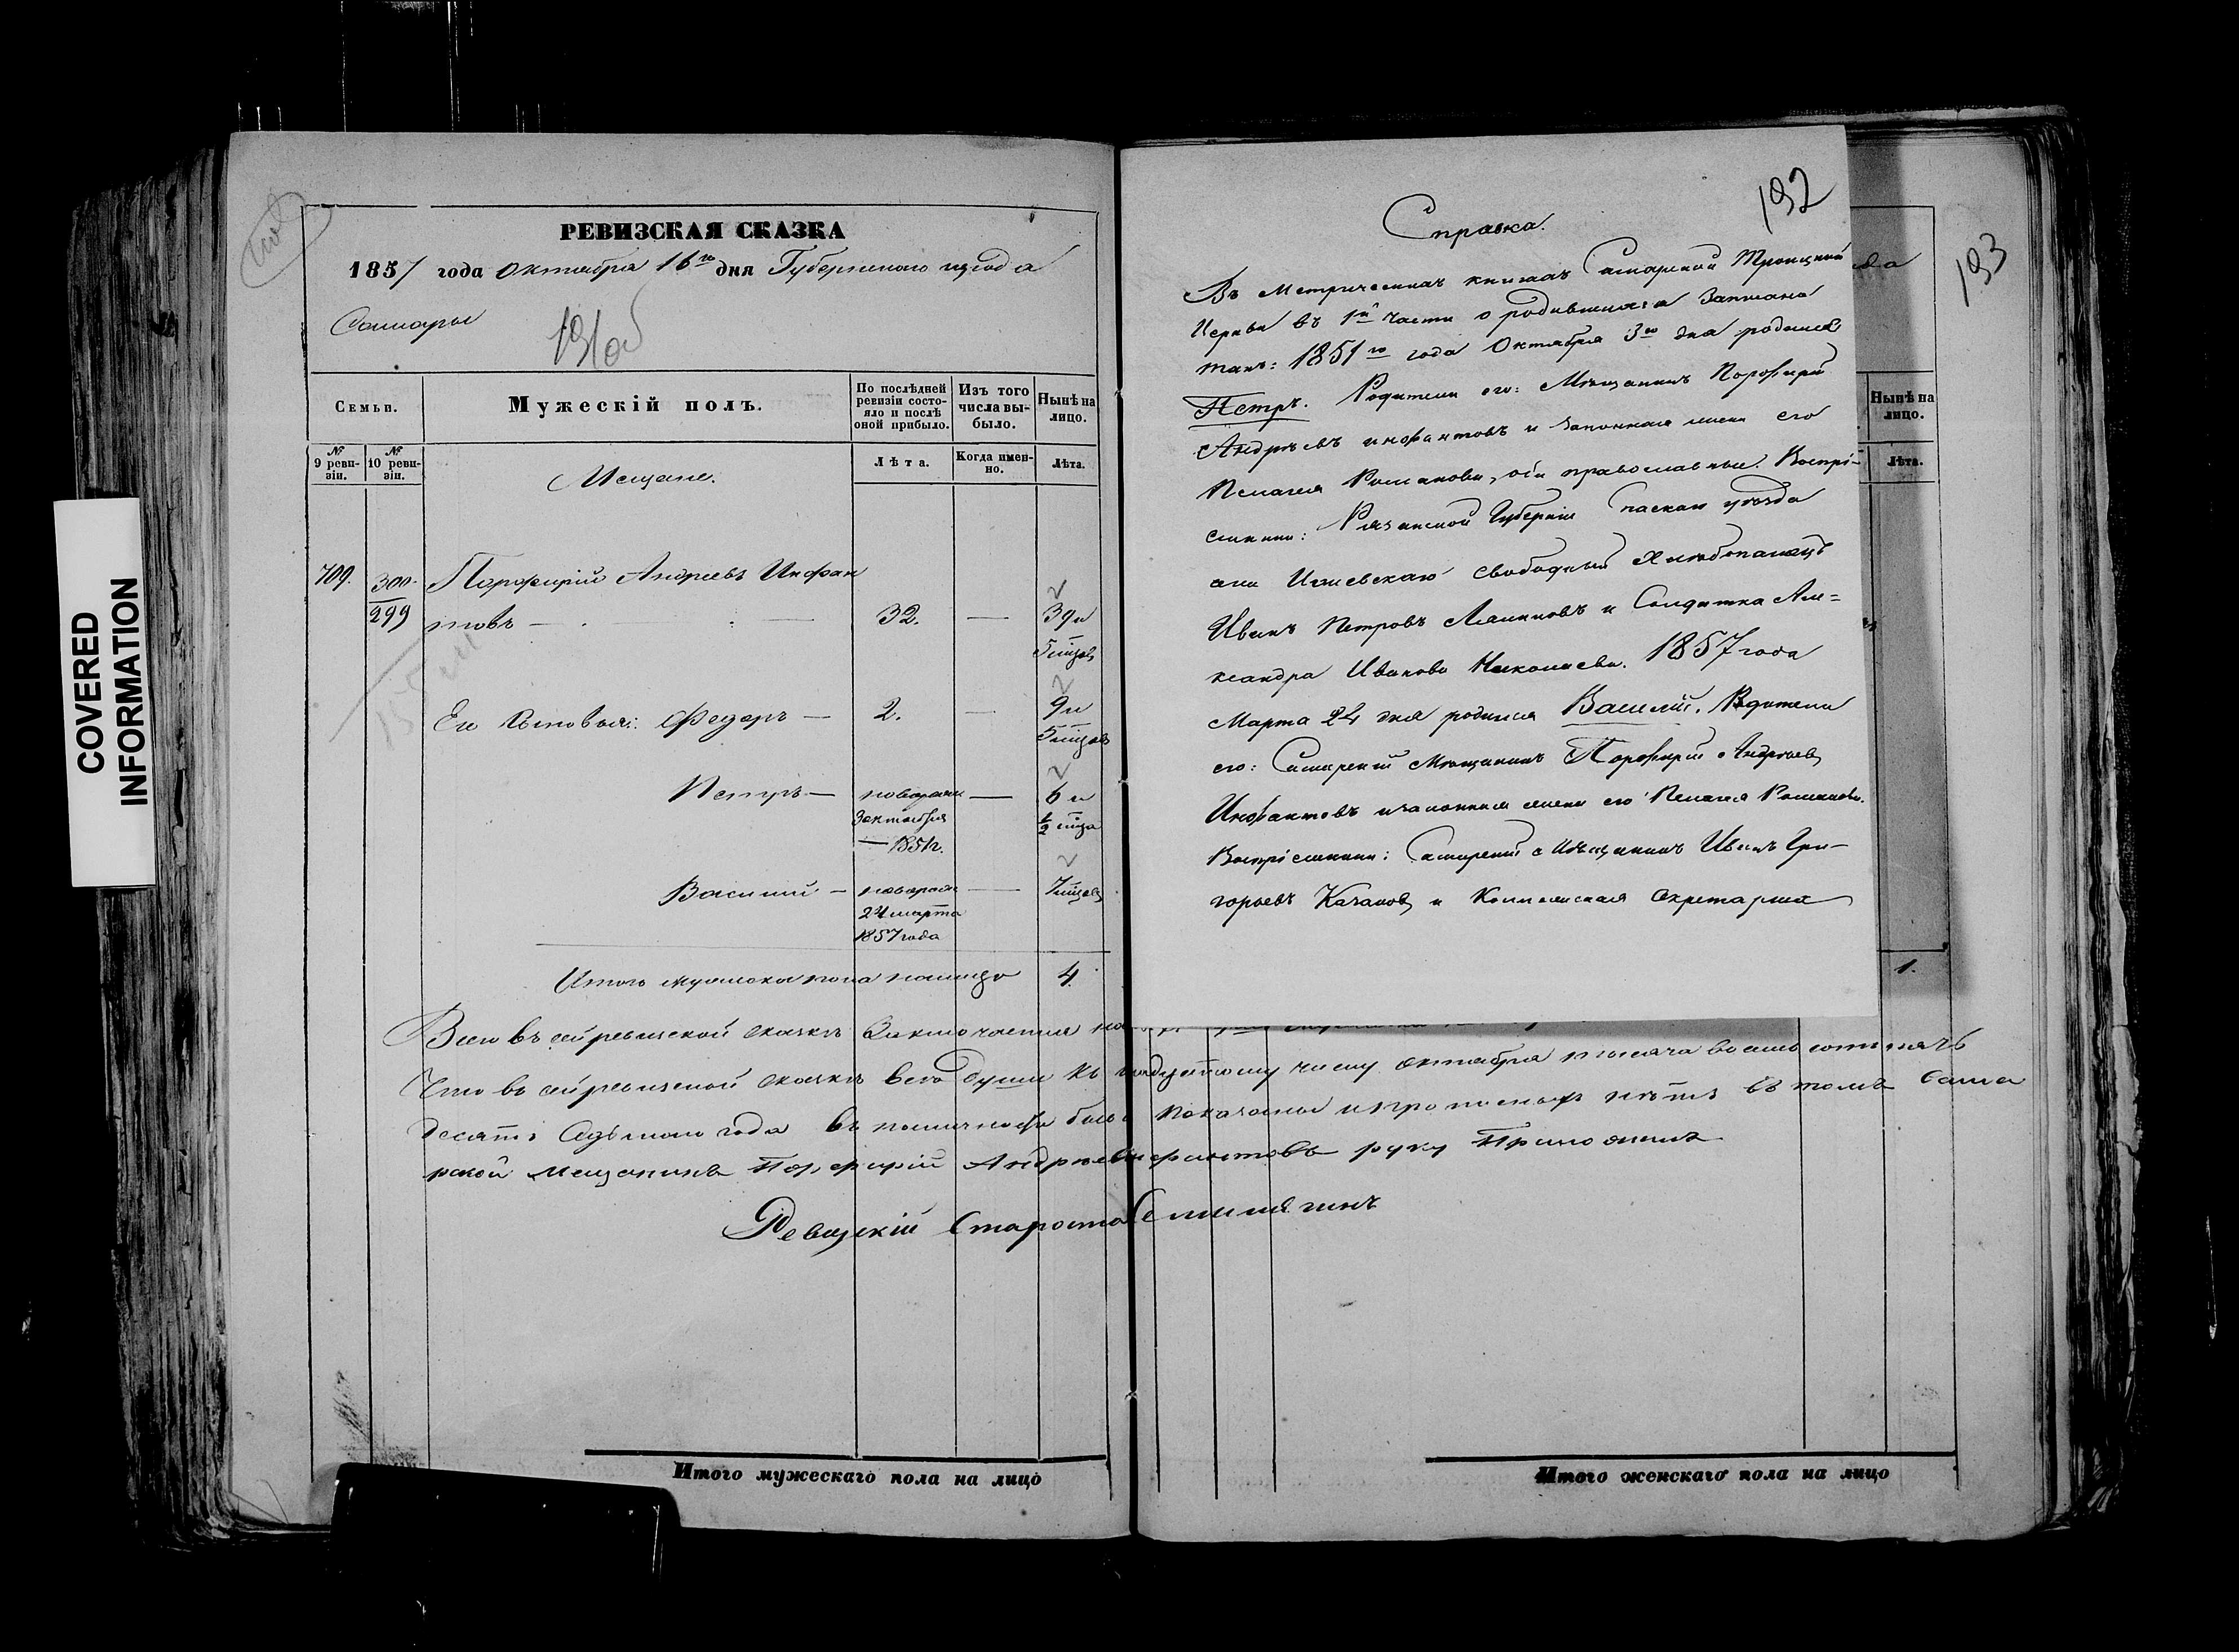 COVERED
INFORMATION
РЕВИЗСКАЯ СКАЗКА
1857 года Октября 16го дня Губернскаго города
Самары
191об
Семьи.
Мужескій полъ.
По послѣдней ревизіи состояло и послѣ оной прибыло.
Изъ того числа выбыло.
Нынѣ на лицо.
№ 9 ревизіи.
№ 10 ревизіи.
Мещане.
Лѣта.
Когда именно.
Лѣта.
709. 300/299 Порфирій Андреевъ Инфан
товъ — 32. — 39 и
5 мцов
Его сыновья: Федоръ — 2. — 9 и
5 мцов
Петръ — новорож — 6 и
3 октября ½ мца
1851 г.
Василий — новорож — 7 мцов
24 марта
1857 года
Итого мужеска пола налицо 4.
Всего въ сей ревизской сказкѣ заключается
Что въ сей ревизской сказкѣ всѣ души къ
числу октября тысяча восемьсотъ пять
десятъ седьмого года въ наличности были показаны и прописныхъ нѣтъ въ томъ сама
рской мещанинъ Порфирій Андреевъ Инфантовъ руку приложилъ
Ревизкій Староста
Итого мужескаго пола на лицо
192
Справка.
Въ Метрическихъ книгахъ Самарской Троицкой
Церкви въ 1й части о родившихся записано
такъ: 1851го года Октября 3го дня родился
Петръ. Родители его: Мѣщанинъ Порфирій
Андрѣевъ Инфантовъ и законная жена его
Пелагея Романова, оба православные. Воспрі-
емники: Рязанской Губерніи Спаскаго уѣзда
Ижевскаго свободный Хлѣбопашецъ
Иванъ Петровъ и Солдатка Але=
ксандра Иванова Николаева. 1857 года
Марта 24 дня родился Василій. Родители
его: Самарскій Мѣщанинъ Порфирій Андрѣевъ
Инфантовъ и законная жена его Пелагея Романова.
Воспріемники: Самарскій Мѣщанинъ Иванъ Гри-
горьевъ Качановъ и Коллежская Секретарша
193
да
Нынѣ на лицо.
Лѣта.
1.
Итого женскаго пола на лицо